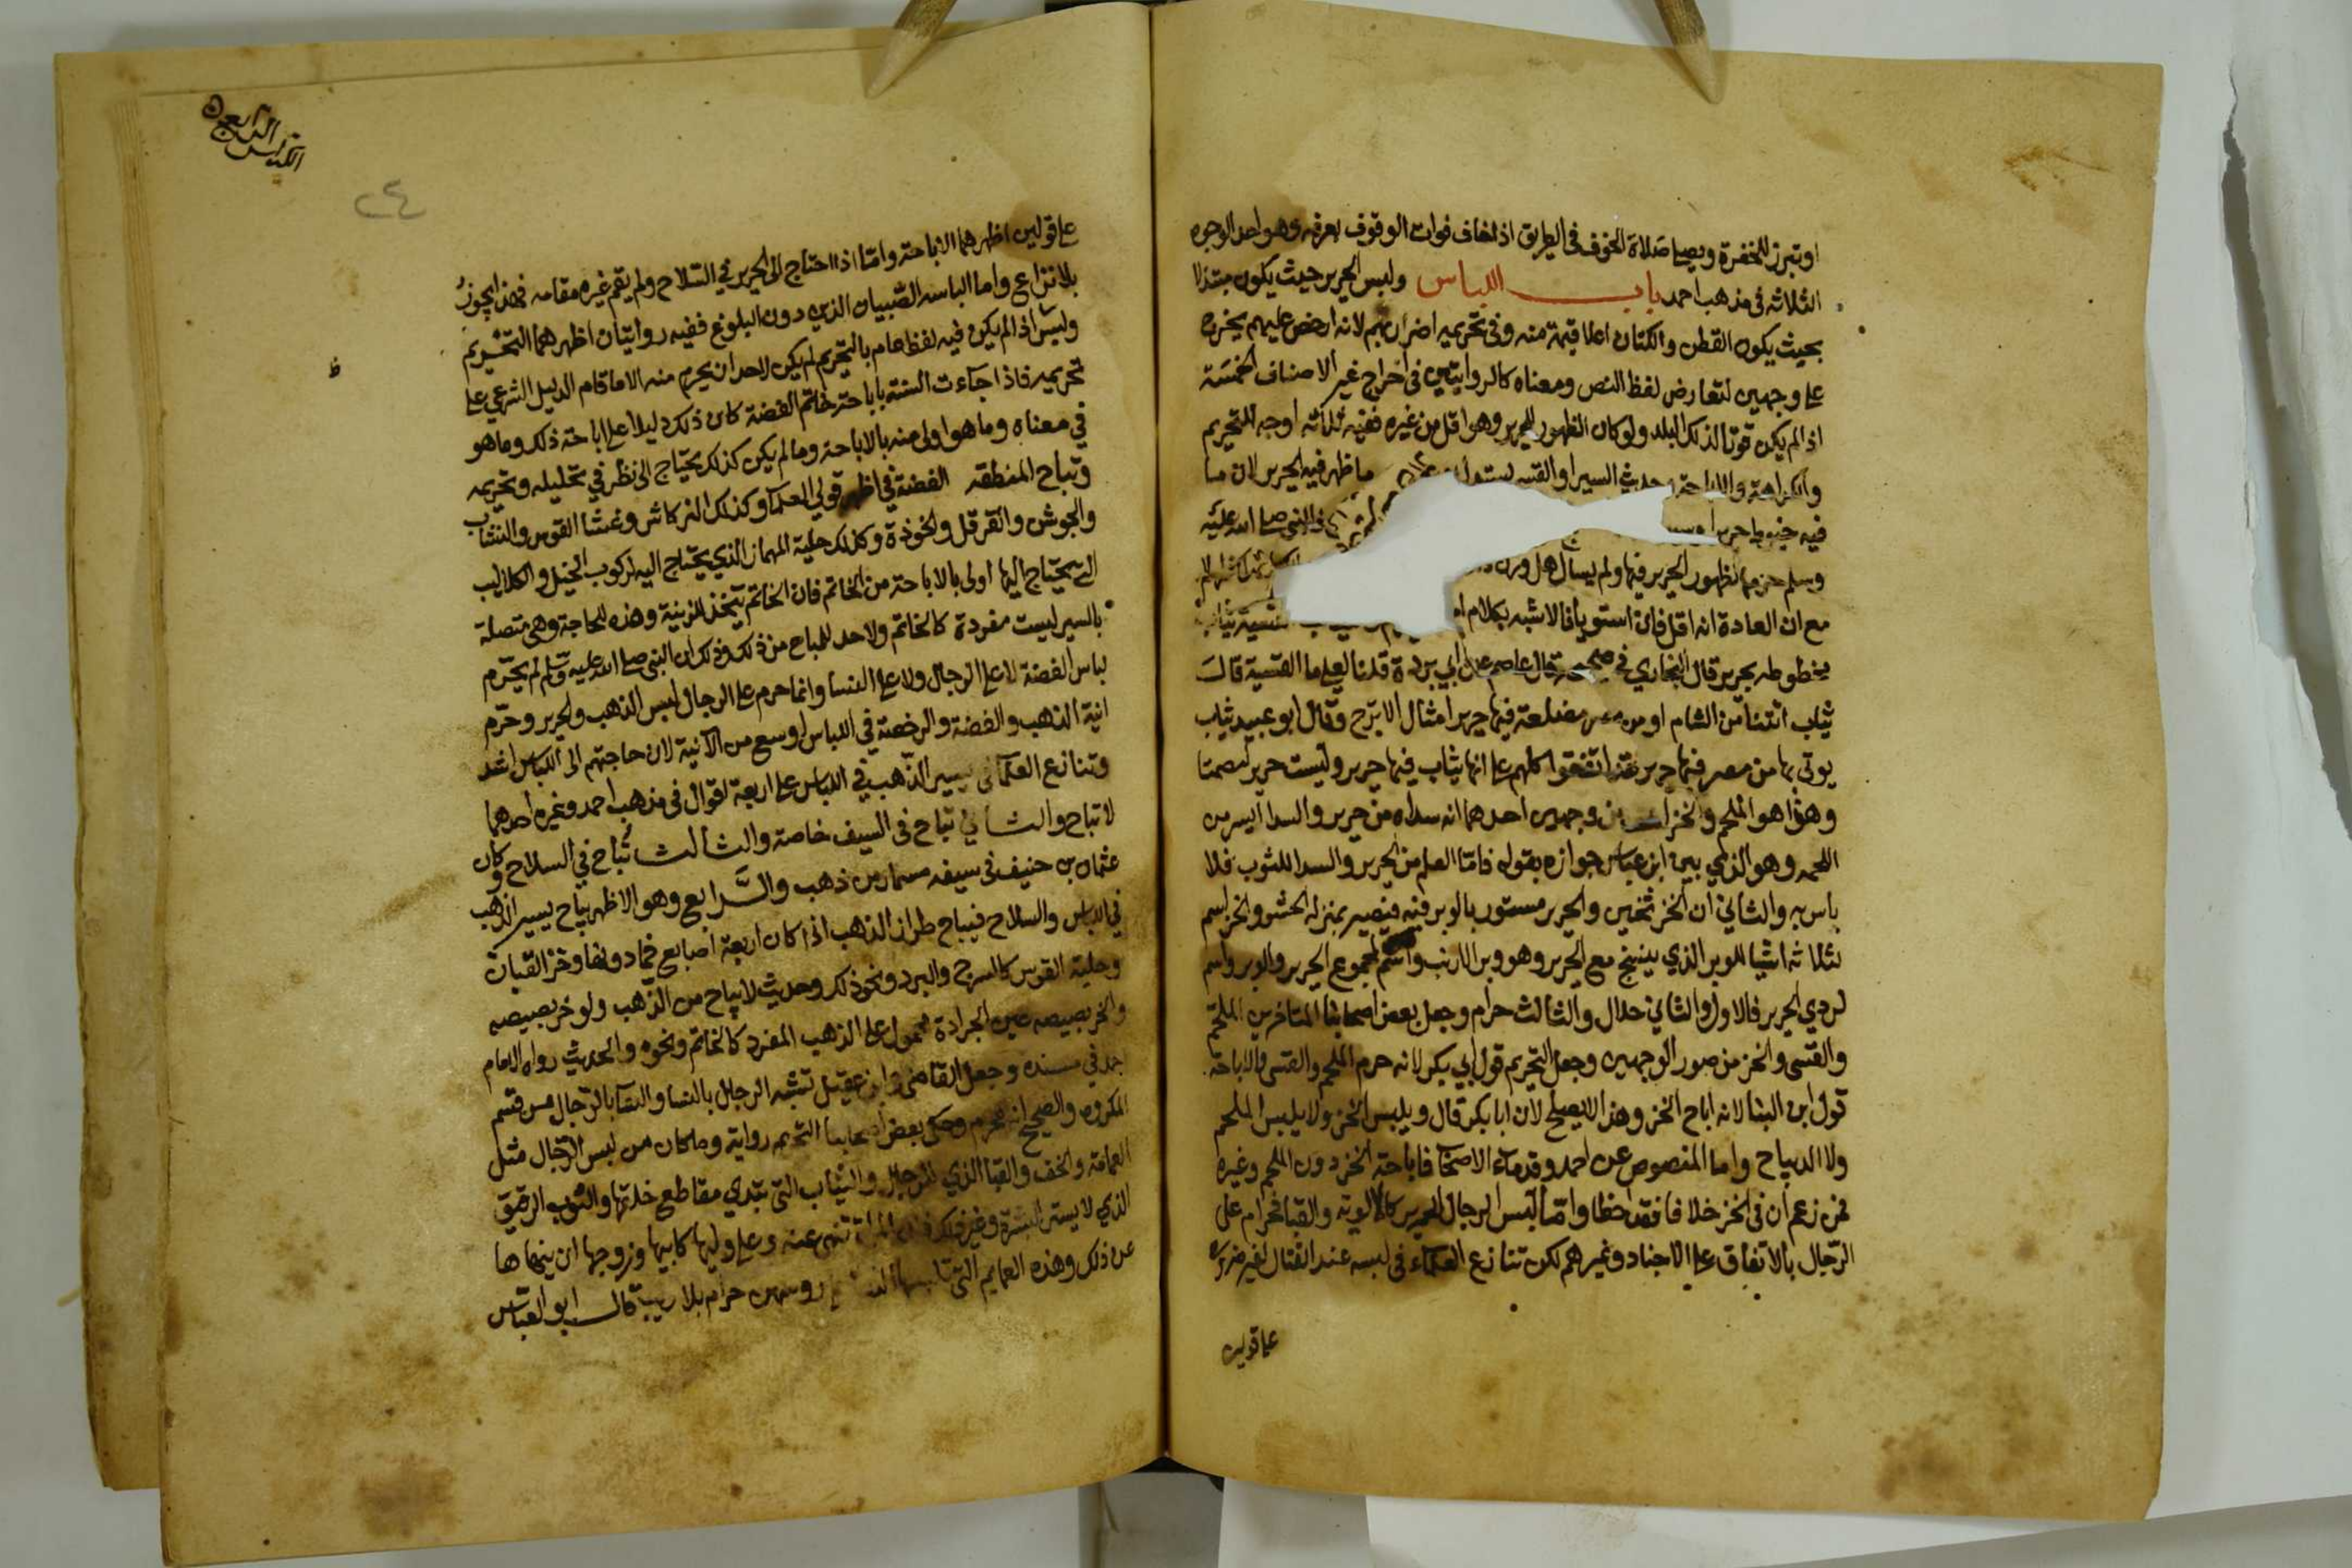 او تبرز للخفرة ويصلي صلاة الخوف في الطريق اذا خاف فوات الوقوف بعرفه وهو احد الوجوه
الثلاثه في مذهب احمد باب اللباس ولبس الحرير حيث يكون مبتذلا
بحيث يكون القطن والكتان اعلا قيمة منه وفي تحريمه اضرار بهم لانه ارخص عليهم يخرج
علي وجهين لتعارض لفظ النص ومعناه كالروايتين في اخراج غير الاصناف الخمسة
اذا لم يكن قوتا لذلك البلد ولو كان الظهور للحرير وهو اقل من غيره ففيه ثلاثه اوجه التحريم
والكراهة والاباحة وحديث السيرا والقسي يستدل ما ظهر فيه الحرير لان ما
فيه خيوط حرير في النبي صلى الله عليه
وسلم حرمها لظهور الحرير فيها ولم يسال هل وزن
مع ان العادة انه اقل فان استويا فالاشبه بكلام ثياب
مخطوطه بحرير قال البخاري في صحيحه قال عاصم عن ابي بردة قلنا لعلي ما القسية قال
ثياب اتتنا من الشام او من مصر مضلعة فيها حرير امثال الاترج وقال ابو عبيد ثياب
يوتي بها من مصر فيها حرير فقد اتفقوا كلهم علي انها ثياب فيها حرير وليست حرير مصمتا
وهذا هو الملحم والخز من وجهين احدهما انه سداه من حرير والسدا ايسر من
اللحمه وهو الذي بين ابن عباس جوازه بقوله فاما العلم من الحرير والسدا للثوب فلا
باس به والثاني ان الخز ثخين والحرير مستور بالوبر فيه فيصير بمنزلة الحشو والخز اسم
لثلاثه اشيا للوبر الذي ينسج مع الحرير وهو وبر الارنب واسم لمجموع الحرير والوبر واسم
لردي الحرير فالاول والثاني حلال والثالث حرام وجعل بعض اصحابنا المتاخرين الملحم
والقسي والخز من صور الوجهين وجعل التحريم قول ابي بكر لانه حرم الملحم والقسي والاباحة
قول ابن البنا لانه اباح الخز وهذا لا يصلح لان ابا بكر قال ويلبس الخز ولا يلبس الملحم
ولا الديباج واما المنصوص عن احمد وقدماء الاصحاب فاباحة الخز دون الملحم وغيره
فمن زعم ان في الخز خلافا فقد اخطا واما لبس الرجال الحرير كالالوية والقبا فحرام علي
الرجال بالاتفاق علي الاجناد وغيرهم لكن تنازع العلماء في لبسه عند القتال لغير ضرورة
علي قولين
الكراس الرابع
٢٤
علي قولين اظهرهما الاباحة واما اذا احتاج الي الحرير في السلاح ولم يقم غيره مقامه فهذا يجوز
بلا نزاع واما الباسه الصبيان الذين دون البلوغ ففيه روايتان اظهرهما التحريم
ولبس اذا لم يكن فيه لفظ عام بالتحريم لم يكن لاحد ان يحرم منه الا ما قام الدليل الشرعي علي
تحريمه فاذا جاءت السنة باباحة خاتم الفضة كان ذلك دليلا علي اباحة ذلك وما هو
في معناه وما هو اولي منه بالاباحة وما لم يكن كذلك يحتاج الي نظر في تحليله وتحريمه
وتباح المنطقة الفضة في اظهر قولي العلما وكذلك التركاش وغشا القوس والنشاب
والجوشن والقرقل والخوذة وكذلك حلية المهماز الذي يحتاج اليه لركوب الخيل والكلاليب
التي يحتاج اليها اولي بالاباحة من الخاتم فان الخاتم يتخذ للزينة وهذه للحاجة وهي متصلة
بالسير ليست مفردة كالخاتم ولا حد للمباح من ذلك وذلك ان النبي صلي الله عليه وسلم لم يحرم
لباس الفضة لا علي الرجال ولا علي النسا وانما حرم علي الرجال لبس الذهب والحرير وحرم
انية الذهب والفضة والرخصة في اللباس اوسع من الآنية لان حاجتهم الي اللباس اشد
وتنازع العلما في يسير الذهب في اللباس علي اربعة اقوال في مذهب احمد وغيره احدهما
لا تباح والثاني تباح في السيف خاصة والثالث تباح في السلاح وكان
عثمان بن حنيف في سيفه مسمار من ذهب والرابع وهو الاظهر يباح يسير الذهب
في اللباس والسلاح فيباح طراز الذهب اذا كان اربعة اصابع فما دونها وخز القبان
وحلية القوس كالسرج والبرد ونحو ذلك وحديث لا يباح من الذهب ولو خربصيصه
والخربصيصه عين الجرادة محمول علي الذهب المفرد كالخاتم ونحوه والحديث رواه الامام
احمد في مسنده وجعل القاضي وابن عقيل تشبه الرجال بالنسا والنسا بالرجال من قسم
المكروه والصحيح انه محرم وحكي بعض اصحابنا التحريم رواية وما كان من لبس الرجال مثل
العمامة والخف والقبا الذي للرجال والثياب التي تبدي مقاطع خلقها والثوب الرقيق
الذي لا يستر البشرة وغير ذلك فان المراة تنهي عنه وعلي وليها كابيها وزوجها ان ينهاها
عن ذلك وهذه العمايم التي تلبسها النسا علي روسهن حرام بلا ريب قال ابو العباس